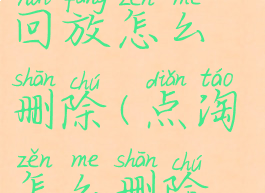 回放怎么
shān chú diǎn táo
删除(点淘
zěn me shān chú
怎么删除